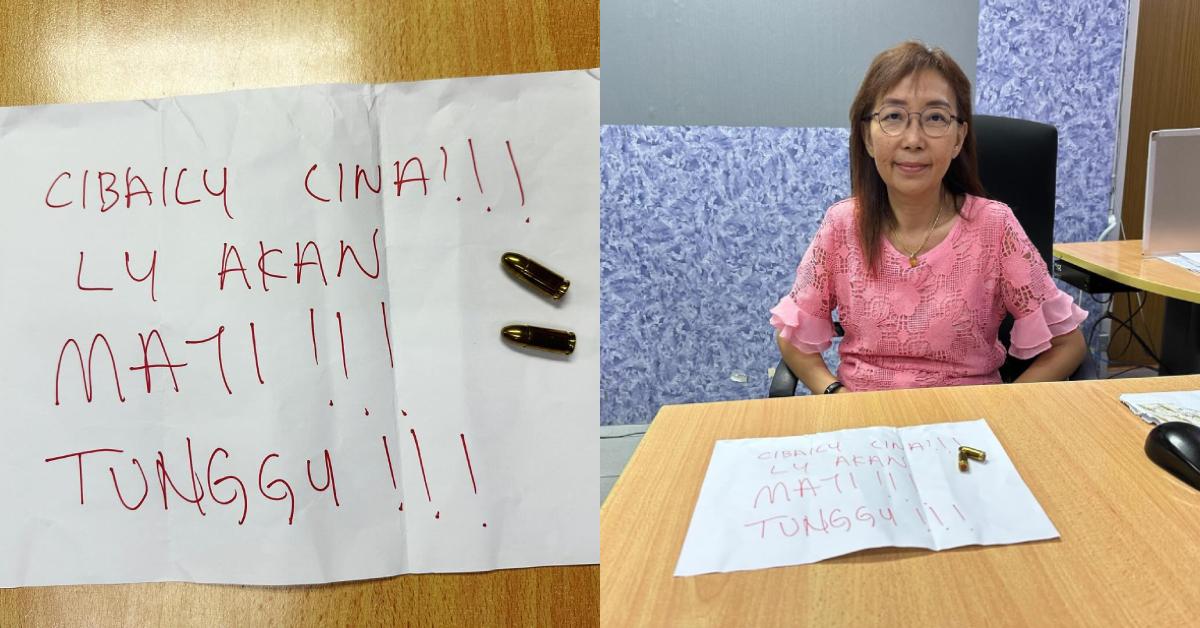 CIBAICY CINA!!!
LY AKAN
MATI !!!
TUNGGU !!!
CIBAICY CINA!!!
LY AKAN
MATI !!!
TUNGGU !!!